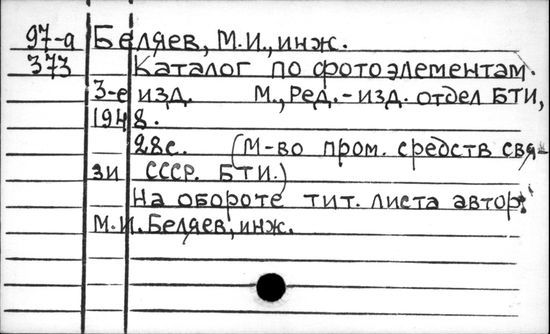 97-а Беляев, М.И., инж.
373 Каталог по фотоэлементам.
3-е изд. М., Ред.-изд. отдел БТИ,
1948.
28с. (М-во пром. средств свя-
зи СССР. БТИ.)
На обороте тит. листа автор:
М.И. Беляев, инж.